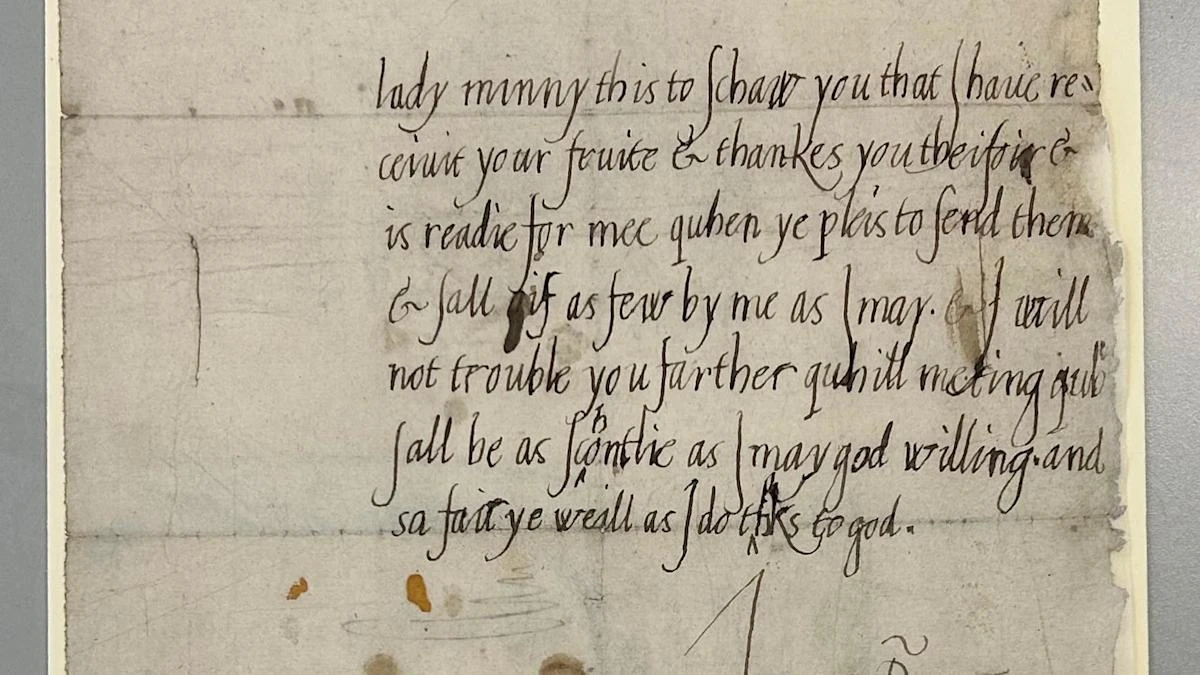 lady minny this to schaw you that I haue re-
ceiuit your fruite & thankes you theifoir &
is readie for mee quhen ye pleis to send them
& sall gif as few by me as I may. & I will
not trouble you farther quhill meting quhᵉ
sall be as schortlie as I may god willing. and
sa fair ye weill as I do thãks to god.